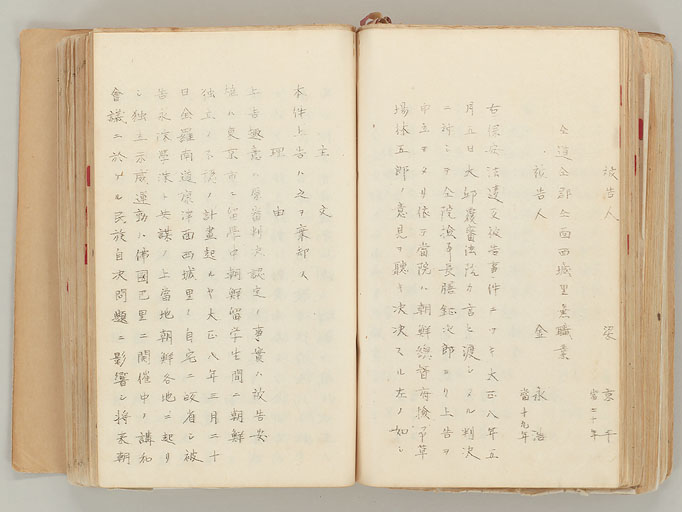 被告人 梁 京千
當二十年
仝道仝郡仝面西城里無職業
被告人 金 永浩
當十九年
右保安法違反被告事件ニツキ大正八年五
月五日大邱覆審法院カ言ヒ渡シタル判決
ニ対シテ仝院検事長 次郎ヨリ上告ヲ
申立テタリ依テ當院ハ朝鮮總督府検事草
場林五郎ノ意見ヲ聴キ決スル左ノ如シ
主 文
本件上告ハ之ヲ棄却ス
理 由
上告趣意ハ原審判決認定ノ事實ハ被告安
壎ハ東京市ニ留學中朝鮮留学生間ニ朝鮮
独立ノ不謀ノ計畫起ルヤ大正八年三月二十
日全羅南道康津面西城里ノ自宅ニ皈省シ被
告永深學洙ト共謀ノ上當地朝鮮各地ニ起リ
シ独立示威運動ハ佛國巴里ニ開催中ノ講和
會議ニ於ケル民族自決問題ニ影響シ将來朝